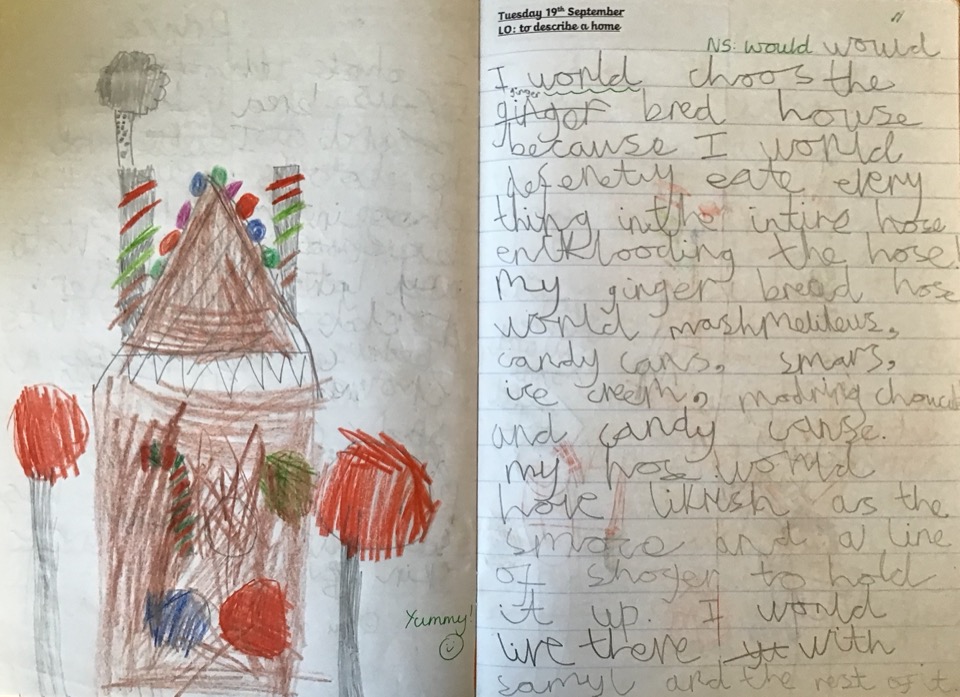 Tuesday 19th September
LO: to describe a home
NS: would would
I world choos the
ginger
ginger bred house
because I world
defenety eate evry
thing in the intire hose
entklooding the hose!
My ginger bread hose
world mashmellews,
candy cans, smars,
ice creem,
and candy canse.
my hos world
have likrish as the
smoce and a line
of shoger to hold
it up. I would
live there with
samyl and the rest of it
Yummy!